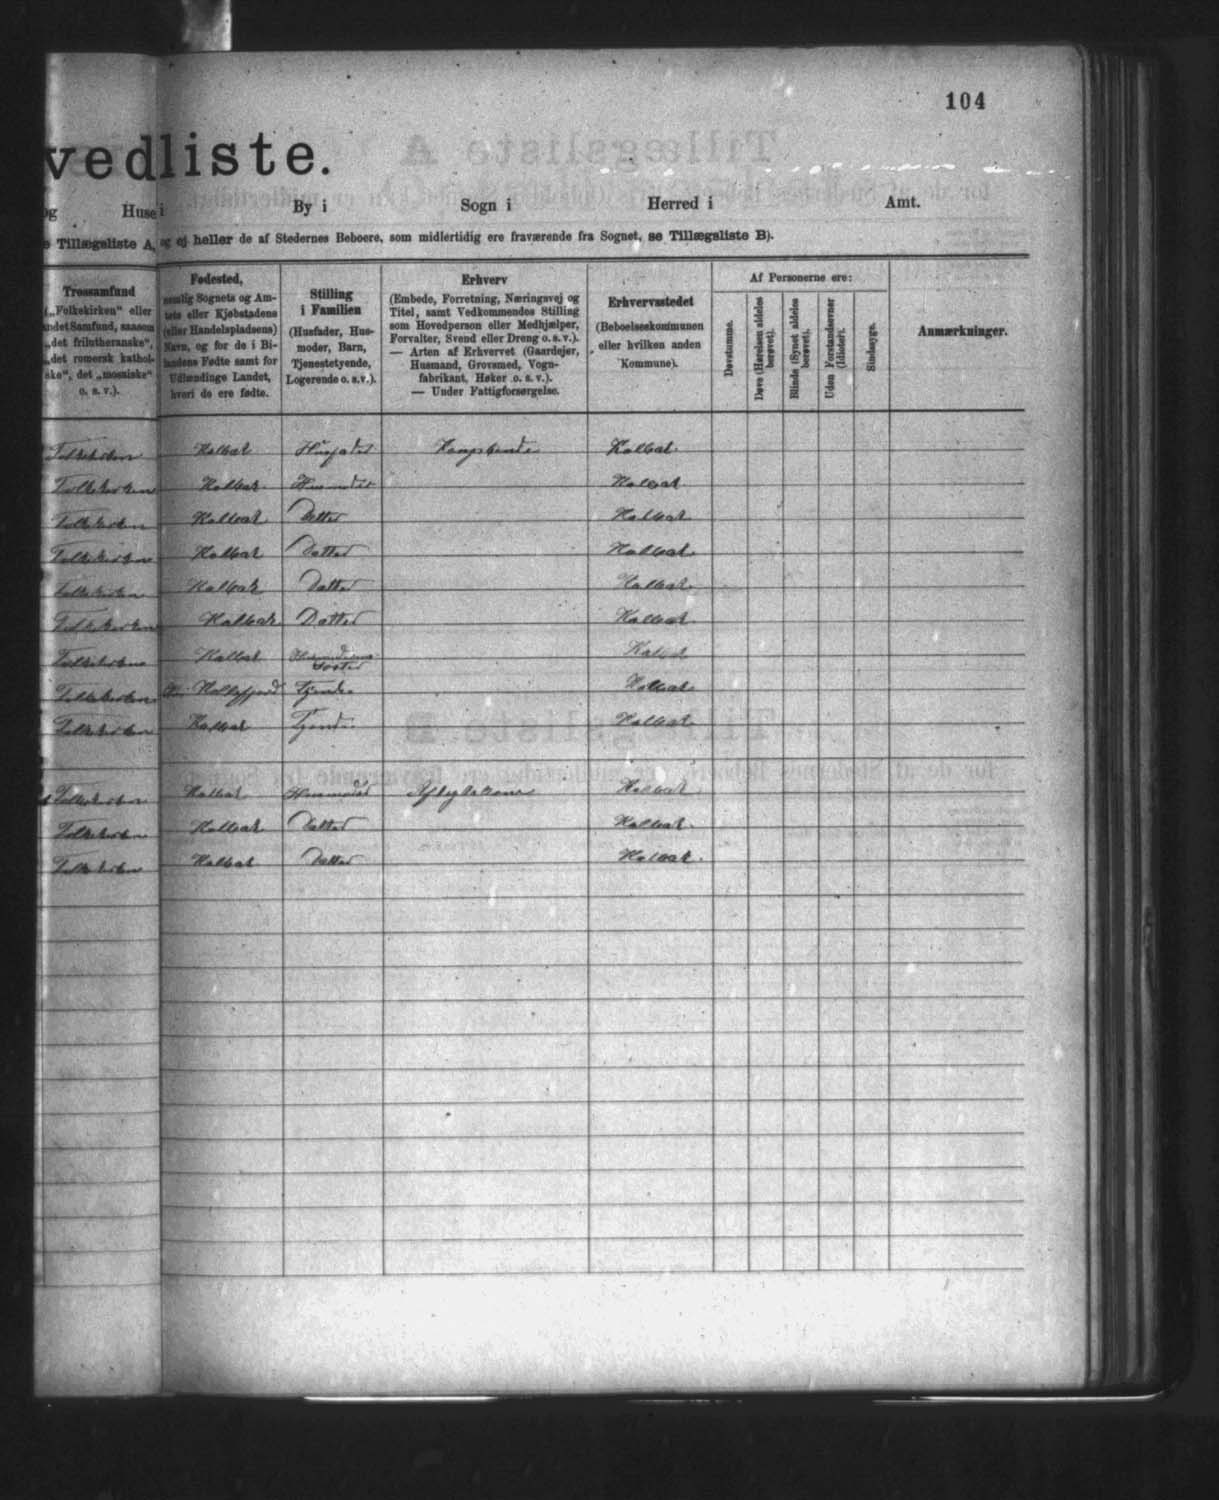 104
vedliste.
og Huse i By i Sogn i Herred i Amt.
Tillægsliste A, og ej heller de af Stedernes Beboere, som midlertidig ere fraværende fra Sognet, se Tillægsliste B).
Trossamfund
(„Folkekirken“ eller
andet Samfund, saasom
„det frilutheranske“,
„det romersk kathol-
ske“, det „mosaiske“
o. s. v.).
Fødested,
nemlig Sognets og Am-
tets eller Kjøbstadens
(eller Handelspladsens)
Navn, og for de i Bi-
landene Fødte samt for
Udlændinge Landet,
hvori de ere fødte.
Stilling
i Familien
(Husfader, Hus-
moder, Barn,
Tjenestetyende,
Logerende o. s. v.).
Erhverv
(Embede, Forretning, Næringsvej og
Titel, samt Vedkommendes Stilling
som Hovedperson eller Medhjælper,
Forvalter, Svend eller Dreng o. s. v.).
— Arten af Erhvervet (Gaardejer,
Husmand, Grovsmed, Vogn-
fabrikant, Høker o. s. v.).
— Under Fattigforsørgelse.
Erhvervsstedet
(Beboelseskommunen
eller hvilken anden
Kommune).
Af Personerne ere:
Døvstumme.
Døve (Hørelsen aldeles
berøvet).
Blinde (Synet aldeles
berøvet).
Uden Forstandsevner
(Idioter).
Sindssyge.
Anmærkninger.
Folkekirken Holbæk Husfader Holbæk
Folkekirken Holbæk Husmoder Holbæk
Folkekirken Holbæk Datter Holbæk
Folkekirken Holbæk Datter Holbæk
Folkekirken Holbæk Datter Holbæk
Folkekirken Holbæk Datter Holbæk
Folkekirken Holbæk Husmoderens Holbæk
Søster
Folkekirken Tyende Holbæk
Folkekirken Holbæk Tyende Holbæk
Folkekirken Holbæk Husmoder Holbæk
Folkekirken Holbæk Datter Holbæk
Folkekirken Holbæk Datter Holbæk